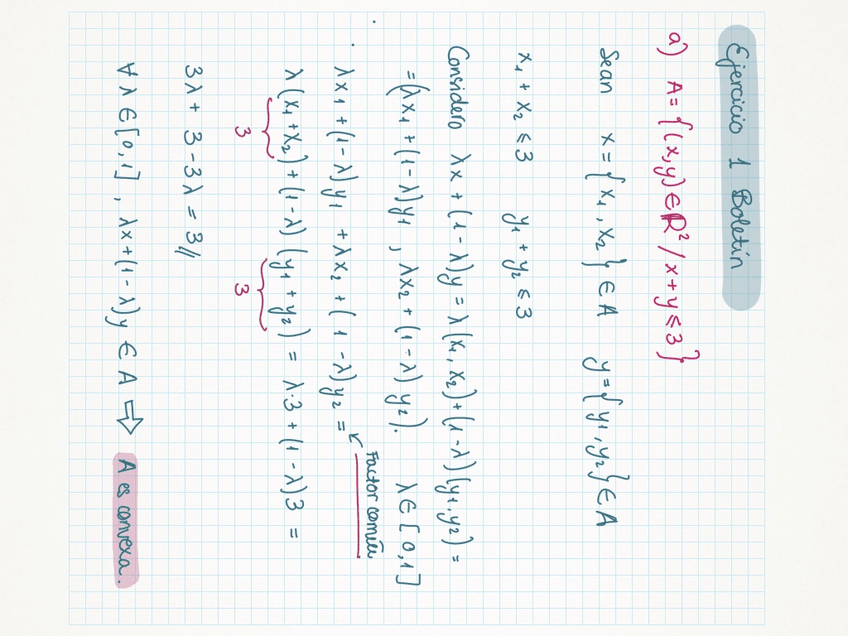 Ejercicio 1 Boletín
a) A = {(x,y) ∈ R² / x + y ≤ 3}
Sean x = {x₁, x₂} ∈ A y = {y₁, y₂} ∈ A
x₁ + x₂ ≤ 3 y₁ + y₂ ≤ 3
Considero λx + (1-λ)y = λ(x₁, x₂) + (1-λ)(y₁, y₂) =
= (λx₁ + (1-λ)y₁, λx₂ + (1-λ)y₂). λ ∈ [0,1]
Factor común
· λx₁ + (1-λ)y₁ + λx₂ + (1-λ)y₂ =
λ(x₁+x₂) + (1-λ)(y₁+y₂) = λ·3 + (1-λ)3 =
3 3
3λ + 3 - 3λ = 3//
∀ λ ∈ [0,1], λx + (1-λ)y ∈ A ⇒ A es convexa.